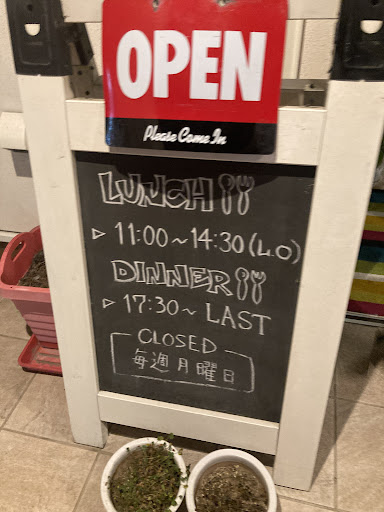 OPEN
Please Come In
LUNCH
▷ 11:00~14:30(L.O)
DINNER
▷ 17:30~ LAST
CLOSED
毎週月曜日